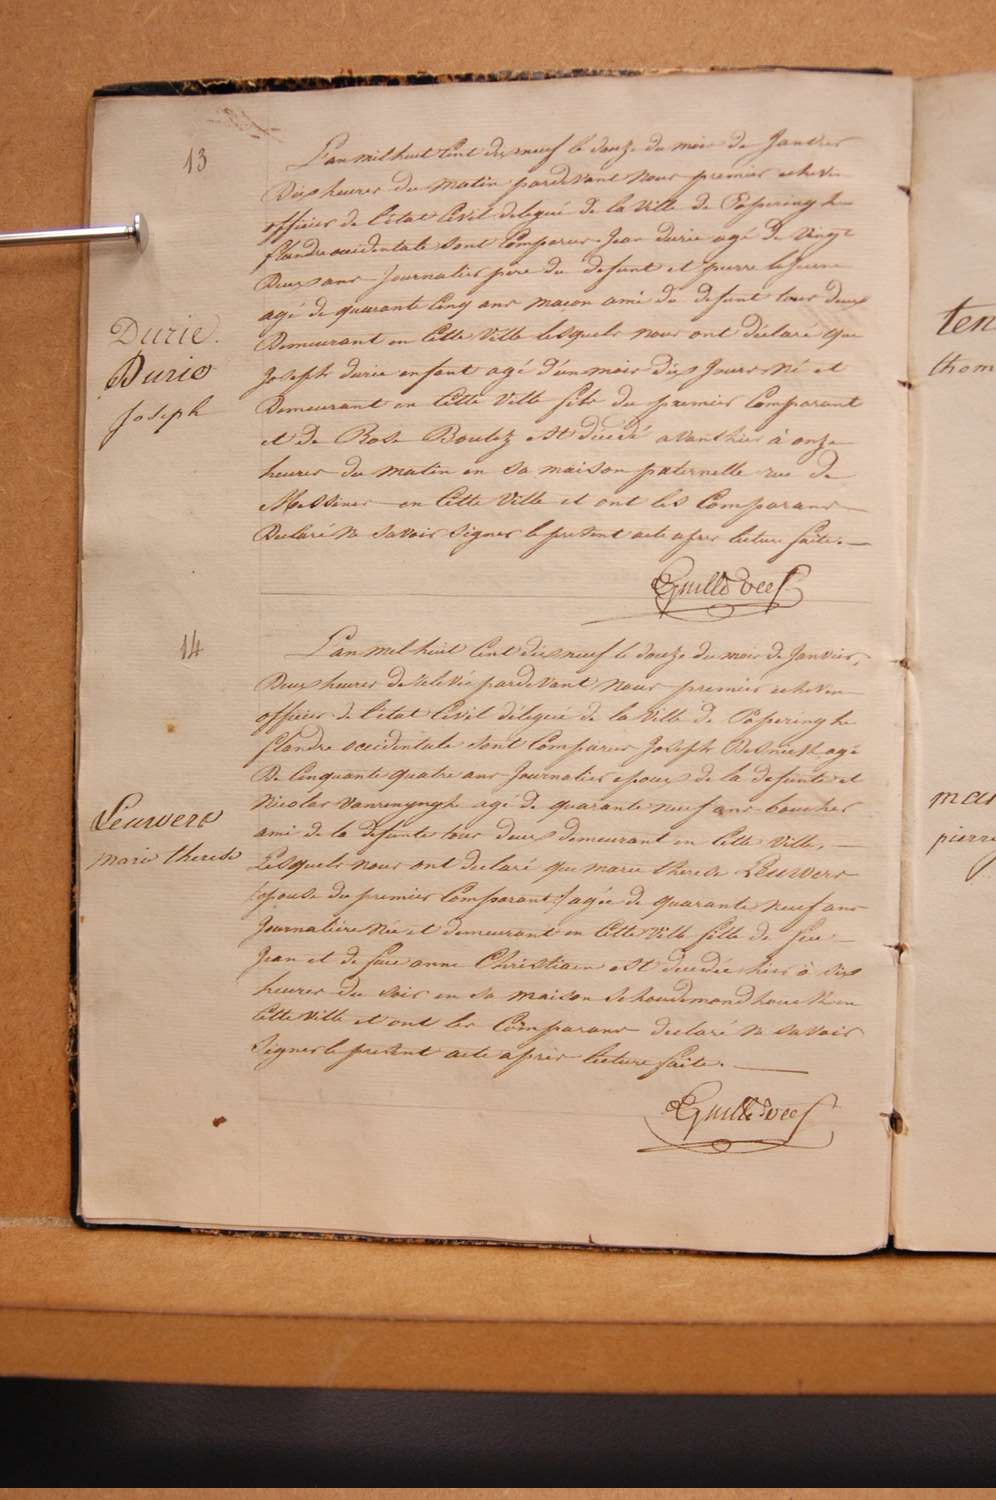 13
L'an mil huit cent dix neuf le douze du mois de Janvier
Dix heures du matin pardevant nous premier echevin
officier de l'état Civil delegué de la Ville de Poperinghe
flandre occidentale sont Comparus Jean durie agé de Vingt
Deux ans Journalier père du defunt et pierre
agé de quarante Cinq ans maçon ami du defunt tous deux
Demeurant en Cette Ville lesquels nous ont déclaré que
Durie.
Durie
Joseph
Joseph durie enfant agé d'un mois dix Jours Né et
Demeurant en Cette Ville fils du premier Comparant
et de Rose Boutez est decédé avanthier à onze
heures du matin en sa maison paternelle rue de
Messines en Cette Ville et ont les Comparans
Declaré ne savoir signer le present acte apres lecture faite.
14
L'an mil huit Cent dix neuf le douze du mois de Janvier,
Deux heures de relevée pardevant nous premier echevin
officier de l'état Civil délegué de la Ville de Poperinghe
flandre occidentale sont Comparus Joseph agé
De Cinquante quatre ans Journalier epoux de la defunte et
Nicolas Vanrenynghe agé de quarante neuf ans boucher
ami de la defunte tous deux demeurant en Cette Ville.
Leuwers
marie therese
Lesquels nous ont declaré que marie therese Leuwers
(epouse du premier Comparant) agée de quarante neuf ans
Journalière Née et demeurant en Cette Ville fille de feu
Jean et de feue anne Christiaen est decedée hier à six
heures du soir en sa maison en
Cette Ville et ont les Comparans declaré ne savoir
Signer le present acte après lecture faite.
ten
thom
mar
pierre